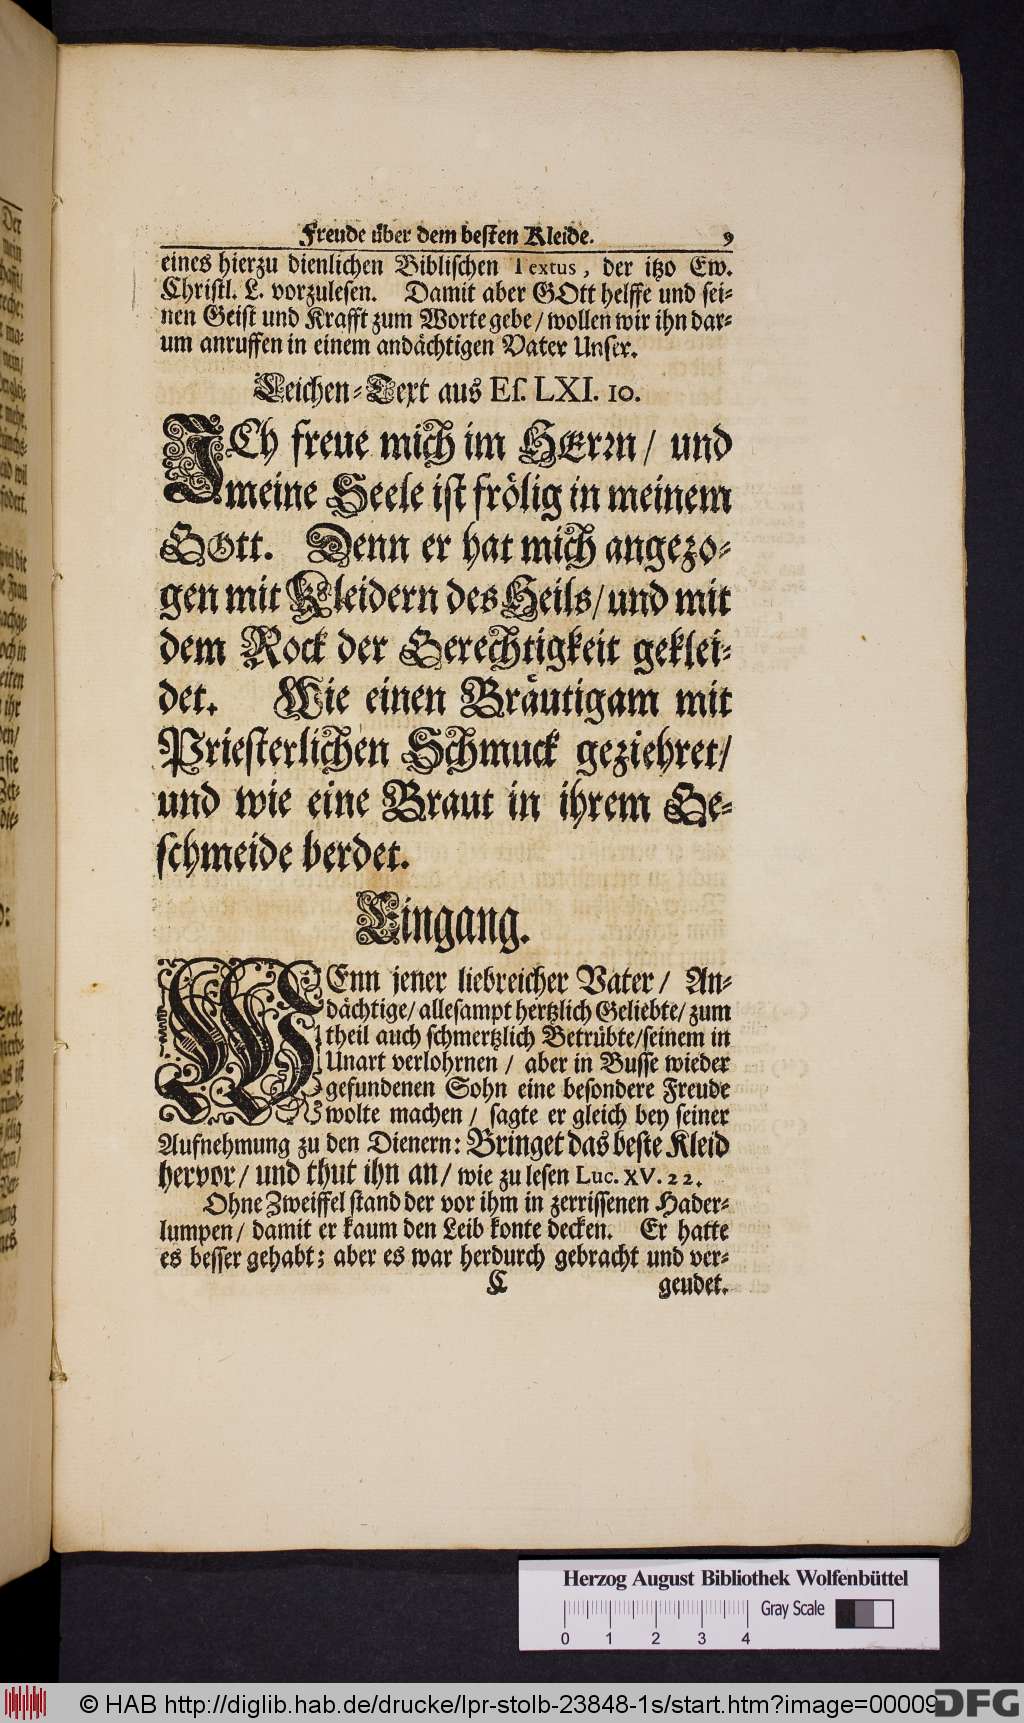 Freude über dem besten Kleide. 9
eines hierzu dienlichen Biblischen Textus, der itzo Ew.
Christl. L. vorzulesen. Damit aber GOtt helffe und sei-
nen Geist und Krafft zum Worte gebe/ wollen wir ihn dar-
um anruffen in einem andächtigen Vater Unser.
Leichen-Text aus Eſ. LXI. 10.
ICh freue mich im HErrn/ und
meine Seele ist frölig in meinem
GOtt. Denn er hat mich angezo-
gen mit Kleidern des Heils/ und mit
dem Rock der Gerechtigkeit geklei-
det. Wie einen Bräutigam mit
Priesterlichen Schmuck geziehret/
und wie eine Braut in ihrem Ge-
schmeide berdet.
Eingang.
WEnn jener liebreicher Vater/ An-
dächtige/ allesampt hertzlich Geliebte/ zum
theil auch schmertzlich Betrübte/ seinem in
Unart verlohrnen/ aber in Busse wieder
gefundenen Sohn eine besondere Freude
wolte machen/ sagte er gleich bey seiner
Aufnehmung zu den Dienern: Bringet das beste Kleid
hervor/ und thut ihn an/ wie zu lesen Luc. XV. 22.
Ohne Zweiffel stand der vor ihm in zerrissenen Hader-
lumpen/ damit er kaum den Leib konte decken. Er hatte
es besser gehabt; aber es war herdurch gebracht und ver-
C geudet.
Herzog August Bibliothek Wolfenbüttel
Gray Scale
0 1 2 3 4
© HAB http://diglib.hab.de/drucke/lpr-stolb-23848-1s/start.htm?image=00009
DFG